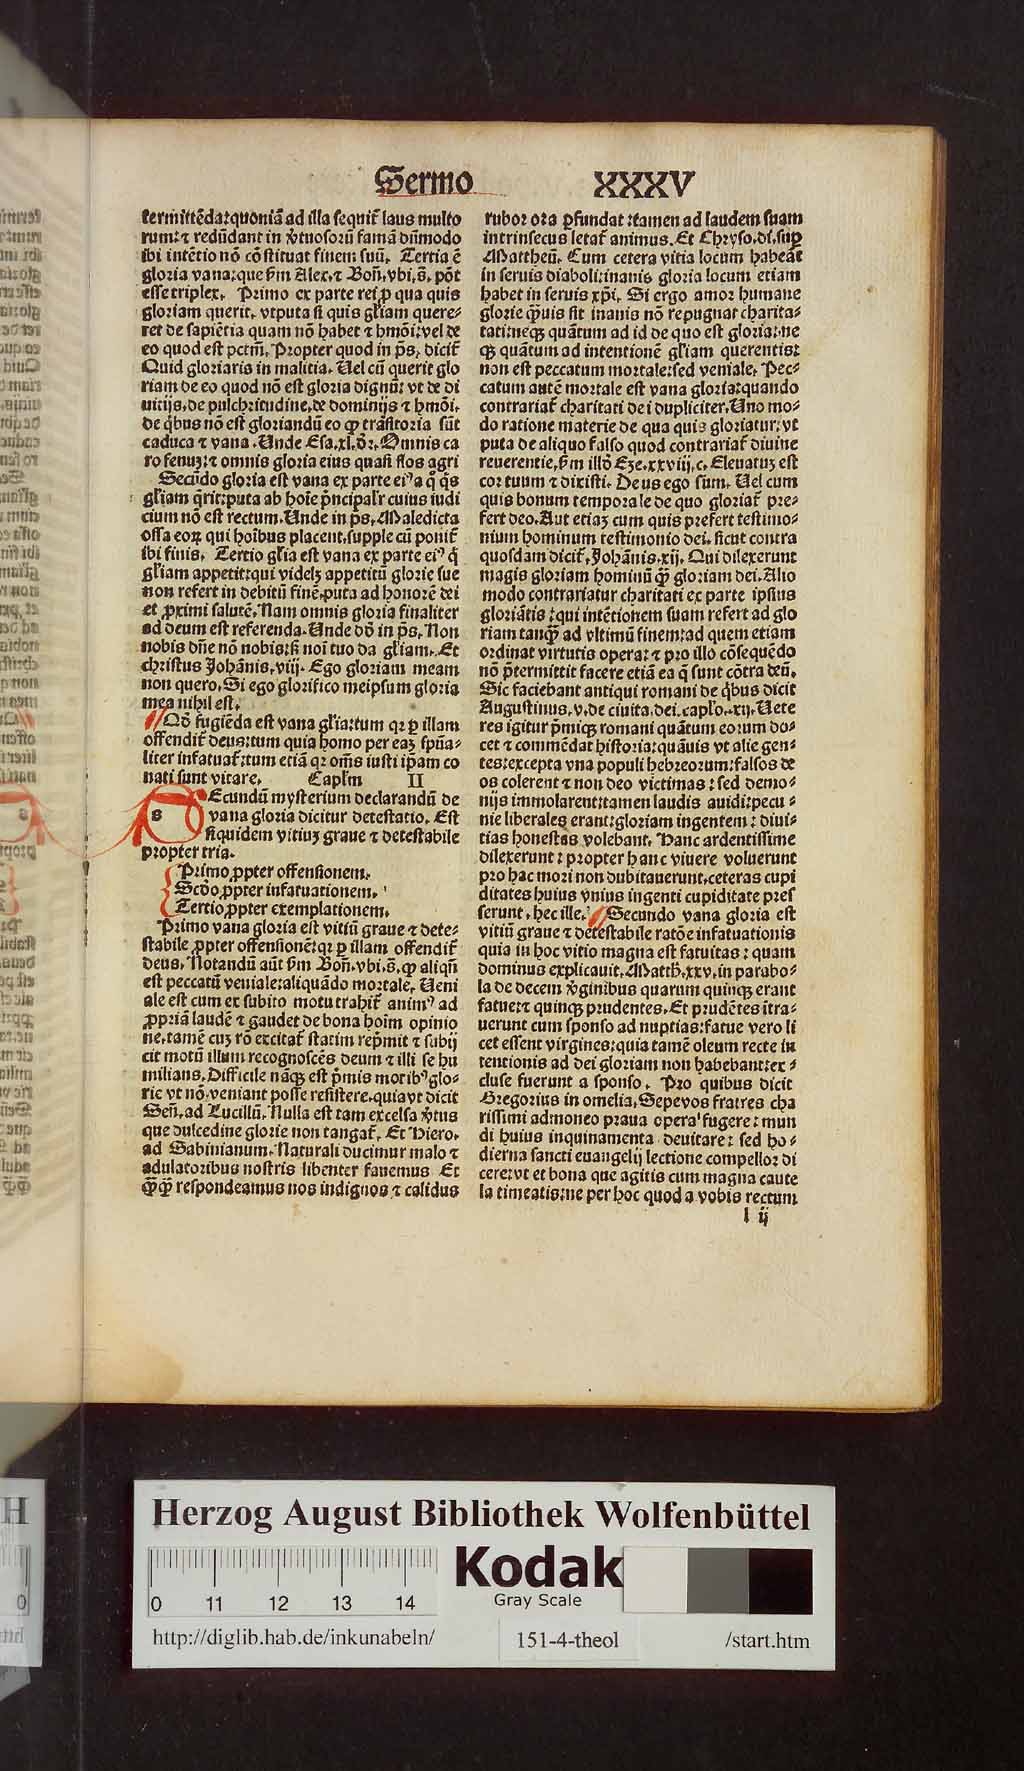 Sermo XXXV
termittēda: quoniā ad illa sequit̄ laus multo
rum: ⁊ redūdant in v̄tuosorū famā dūmodo
ibi intētio nō cōstituat finem suū. Tertia ē
gloria vana: que s̄m Alex. ⁊ Boñ. vbi. s̄. pōt
esse triplex. Primo ex parte rei ꝑ qua quis
gloriam querit. vtputa si quis gl̄iam quere-
ret de sapiētia quam nō habet ⁊ hmōi: vel de
eo quod est pctm̄. Propter quod in ps̄. dicit̄
Quid gloriaris in malitia. Uel cū querit glo
riam de eo quod nō est gloria dignū: vt de di
uitijs. de pulchritudine. de dominijs ⁊ hmōi.
de q̄bus nō est gloriandū eo ꝙ trāsitoria sūt
caduca ⁊ vana. Unde Esa. xl. dr̄. Omnis ca
ro fenuꝫ: ⁊ omnis gloria eius quasi flos agri
Secūdo gloria est vana ex parte eiꝰ a q̄ q̄s
gl̄iam q̄rit: puta ab hoīe p̄ncipalr̄ cuius iudi
cium nō est rectum. Unde in ps̄. Maledicta
ossa eoꝝ qui hoībus placent. supple cū ponit̄
ibi finis. Tertio gl̄ia est vana ex parte eiꝰ q̄
gl̄iam appetit: qui videlꝫ appetitū glorie sue
non refert in debitū finē. puta ad honorē dei
et ꝓximi salutē. Nam omnis gloria finaliter
ad deum est referenda. Unde dō in ps̄. Non
nobis dn̄e nō nobis: s̄ noī tuo da gl̄iam. Et
christus Johānis. viij. Ego gloriam meam
non quero. Si ego glorifico meipsum gloria
mea nihil est.
Qd̄ fugiēda est vana gl̄ia: tum qꝛ ꝑ illam
offendit̄ deus: tum quia homo per eaꝫ spūa-
liter infatuat̄: tum etiā qꝛ om̄s iusti ip̄am co
nati sunt vitare. Capl̄m II
SEcundū mysterium declarandū de
vana gloria dicitur detestatio. Est
siquidem vitiuꝫ graue ⁊ detestabile
propter tria.
Primo ꝓpter offensionem.
Scd̄o ꝓpter infatuationem.
Tertio ꝓpter exemplationem.
Primo vana gloria est vitiū graue ⁊ dete-
stabile ꝓpter offensionē: qꝛ ꝑ illam offendit̄
deus. Notandū aūt s̄m Boñ. vbi. s̄. ꝙ aliqn̄
est peccatū veniale: aliquādo mortale. Ueni
ale est cum ex subito motu trahit̄ animꝰ ad
ꝓpriā laudē ⁊ gaudet de bona hoīm opinio
ne. tamē cuꝫ rō excitat̄ statim rep̄mit ⁊ subij
cit motū illum recognoscēs deum ⁊ illi se hu
milians. Difficile nāꝙ est p̄mis moribꝰ glo-
rie vt nō veniant posse resistere. quia vt dicit
Señ. ad Lucillū. Nulla est tam excelsa v̄tus
que dulcedine glorie non tangat̄. Et Hiero.
ad Sabinianum. Naturali ducimur malo ⁊
adulatoribus nostris libenter fauemus Et
q̄ꝙ̄ respondeamus nos indignos ⁊ calidus
rubor ora ꝑfundat: tamen ad laudem suam
intrinsecus letat̄ animus. Et Chryso. di. suꝑ
Mattheū. Cum cetera vitia locum habeāt
in seruis diaboli: inanis gloria locum etiam
habet in seruis xp̄i. Si ergo amor humane
glorie q̄uis sit inanis nō repugnat charita-
tati: neqꝫ quātum ad id de quo est gloria: ne
qꝫ quātum ad intentionē gl̄iam querentis:
non est peccatum mortale: sed veniale. Pec-
catum autē mortale est vana gloria: quando
contrariat̄ charitati dei dupliciter. Uno mo-
do ratione materie de qua quis gloriatur: vt
puta de aliquo falso quod contrariat̄ diuine
reuerentie. s̄m illd̄ Eze. xxviij. c. Eleuatuꝫ est
cor tuum ⁊ dixisti. Deus ego sum. Uel cum
quis bonum temporale de quo gloriat̄ pre-
fert deo. Aut etiaꝫ cum quis prefert testimo-
nium hominum testimonio dei. sicut contra
quosdam dicit̄. Johānis. xij. Qui dilexerunt
magis gloriam hominū q̄ꝫ gloriam dei. Alio
modo contrariatur charitati ex parte ipsius
gloriātis: qui intētionem suam refert ad glo
riam tanq̄ꝫ ad vltimū finem: ad quem etiam
ordinat virtutis opera: ⁊ pro illo cōsequēdo
nō p̄termittit facere etiā ea q̄ sunt cōtra deū.
Sic faciebant antiqui romani de q̄bus dicit
Augustinus. v. de ciuita. dei. capl̄o. xij. Uete
res igitur p̄miqꝫ romani quātum eorum do-
cet ⁊ commēdat historia: quāuis vt alie gen-
tes: excepta vna populi hebreorum: falsos de
os colerent ⁊ non deo victimas: sed demo-
nijs immolarent: tamen laudis auidi: pecu-
nie liberales erant: gloriam ingentem: diui-
tias honestas volebant. Hanc ardentissime
dilexerunt: propter hanc viuere voluerunt
pro hac mori non dubitauerunt. ceteras cupi
ditates huius vnius ingenti cupiditate pres
serunt. hec ille. Secundo vana gloria est
vitiū graue ⁊ detestabile ratōe infatuationis
quia in hoc vitio magna est fatuitas: quam
dominus explicauit. Matth. xxv. in parabo-
la de decem v̄ginibus quarum quinqꝫ erant
fatue: ⁊ quinqꝫ prudentes. Et prudētes ītra-
uerunt cum sponso ad nuptias: fatue vero li
cet essent virgines: quia tamē oleum recte in
tentionis ad dei gloriam non habebant: ex-
cluse fuerunt a sponso. Pro quibus dicit
Gregorius in omelia. Sepe vos fratres cha
rissimi admoneo praua opera fugere: mun
di huius inquinamenta deuitare: sed ho-
dierna sancti euangelij lectione compellor di
cere: vt et bona que agitis cum magna caute
la timeatis: ne per hoc quod a vobis rectum
l ij
Herzog August Bibliothek Wolfenbüttel
Kodak
Gray Scale
0 11 12 13 14
http://diglib.hab.de/inkunabeln/ 151-4-theol /start.htm